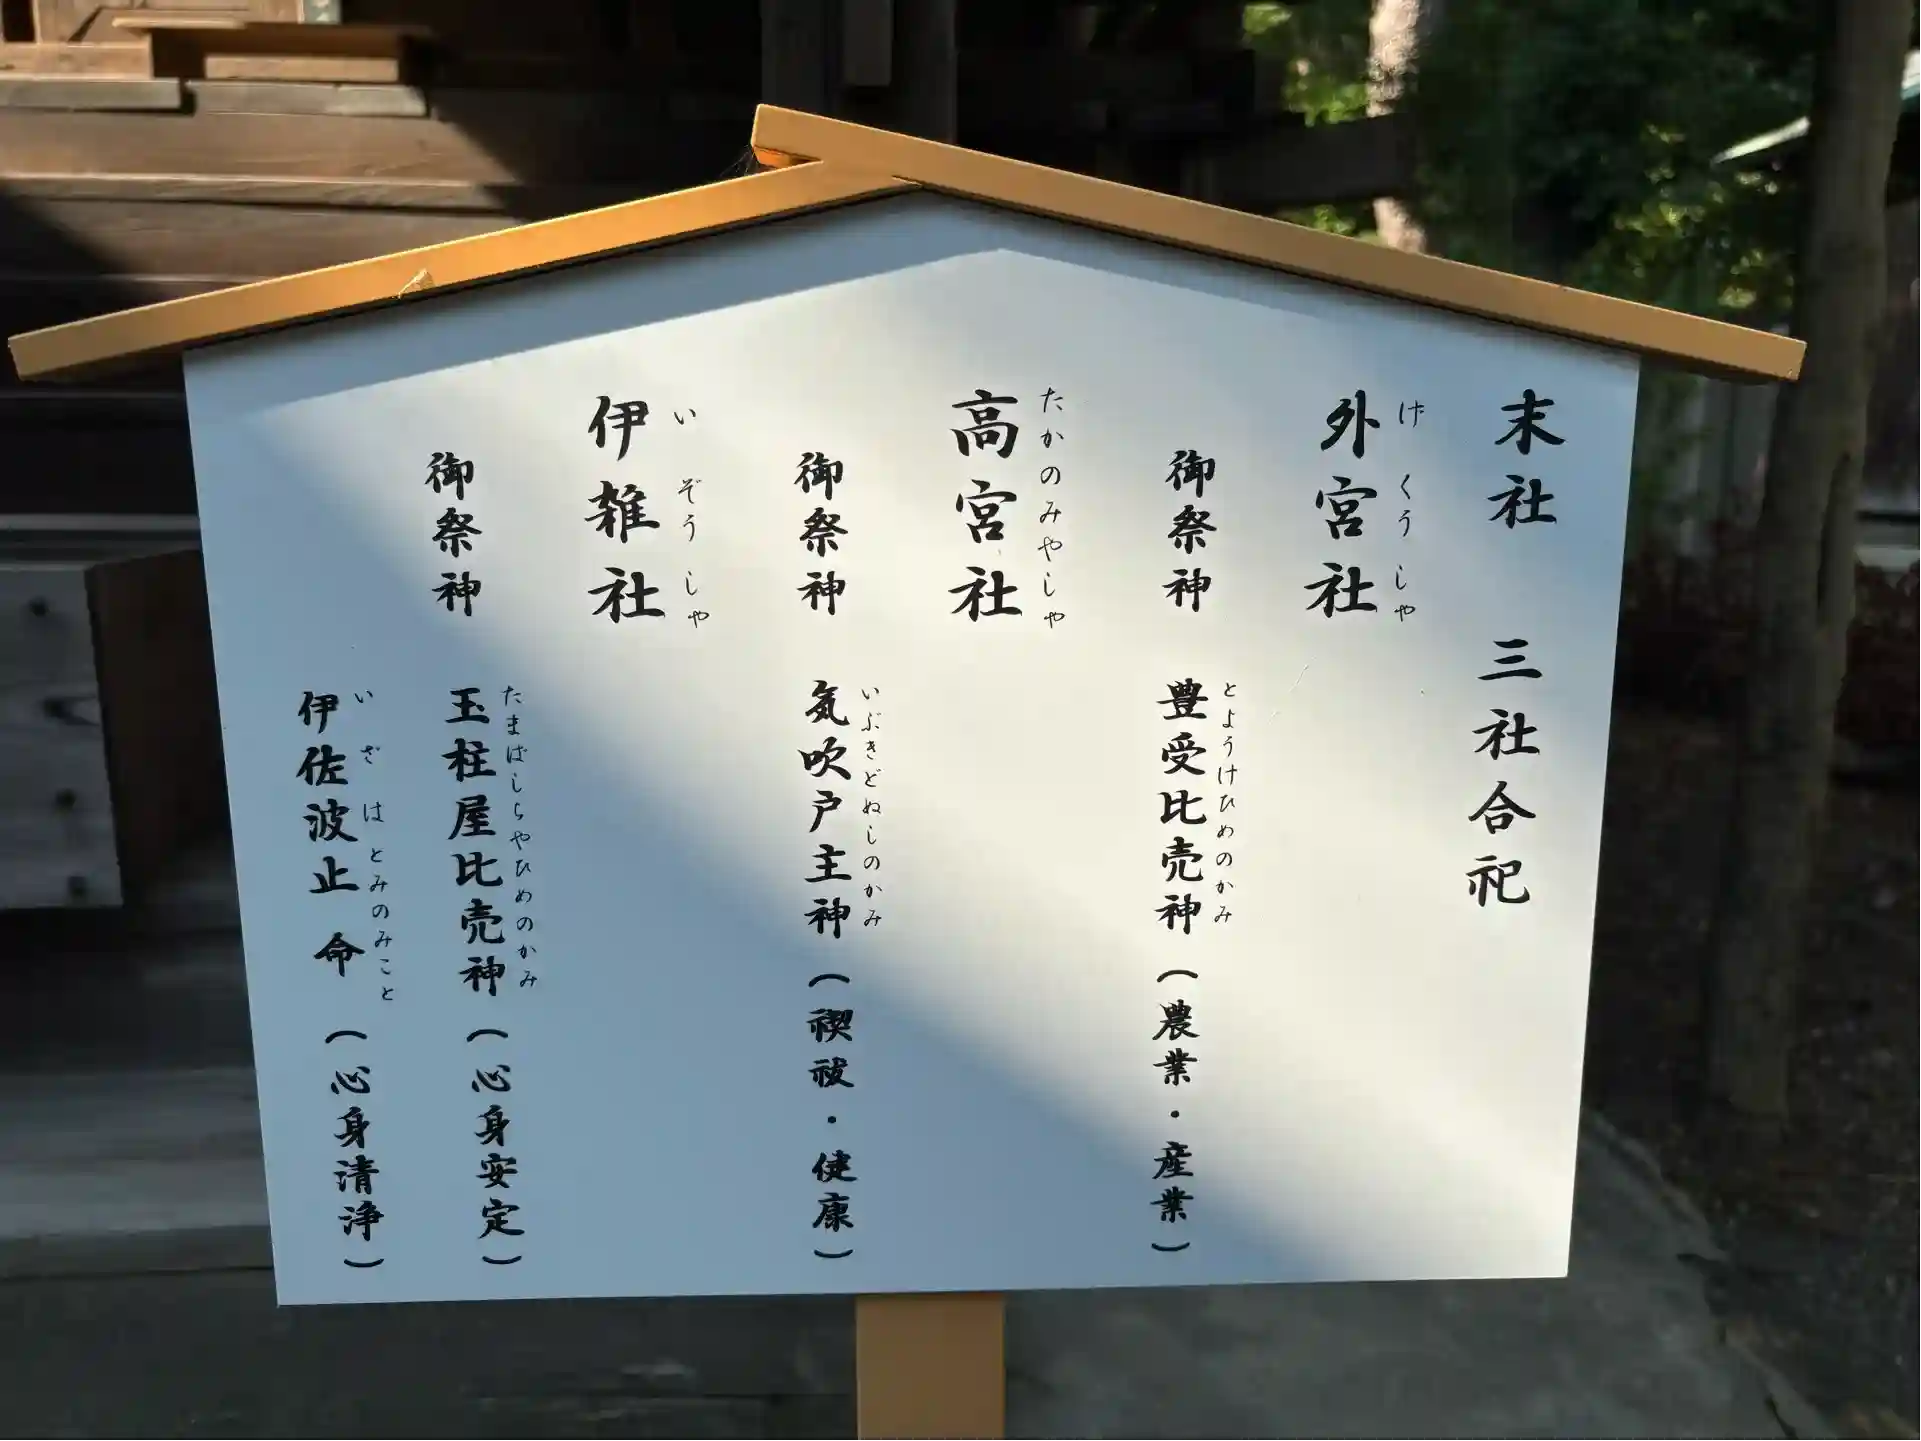 末社 三社合祀
外宮社
げくうしや
御祭神 豊受比売神(農業・産業)
とようけひめのかみ
高宮社
たかのみやしや
御祭神 気吹戸主神(禊祓・健康)
いぶきどぬしのかみ
伊雑社
いぞうしや
御祭神 玉柱屋比売神(心身安定)
たまばしらやひめのかみ
伊佐波止命(心身清浄)
いざはとみのみこと